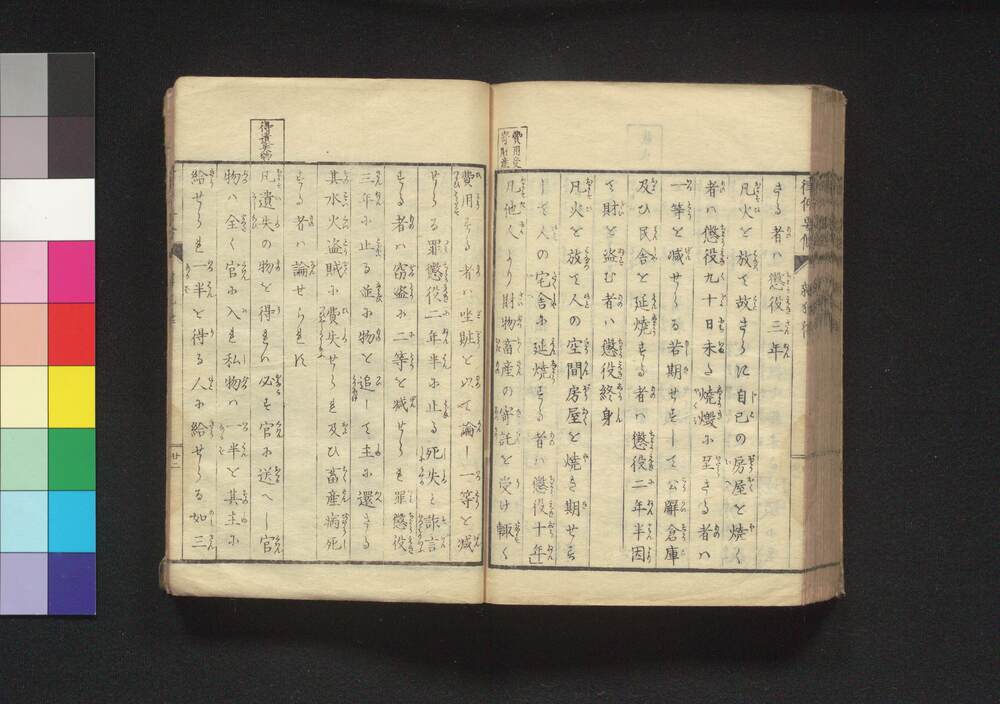 さる者ハ懲役三年
凡火を放て故さらに自己の房屋を焼く
者ハ懲役九十日未る焼燬に至さる者ハ
一等を減せらる若期せすして公廨倉庫
及ひ民舎を延焼する者ハ懲役二年半因
て財を盗む者ハ懲役終身
凡火を放て人の空間房屋を焼き期せす
して人の宅舎に延焼する者ハ懲役十年
費用受
寄財産
凡他人より財物畜産の寄託を受け輙く
費用する者ハ坐贓を以て論し一等を減
せらる罪懲役二年半に止る死失と詐言
する者ハ窃盗に二等を減せらる罪懲役
三年に止る並に物を追して主に還さる
其水火盗賊に費失せられ及ひ畜産病死
する者ハ論せられす
得遺失物
凡遺失の物を得れハ必す官に送へし官
物ハ全く官に入れ私物ハ一半を其主に
給せられ一半を得る人に給せらる如三
廿二